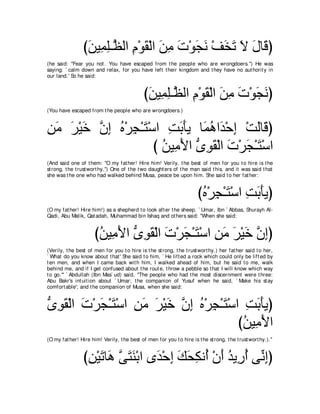 (قَالَ لاَ تَخَفْ نَجَوْتَ مِنَ الْقَوْمِ الظَّـلِمِينَ)
(he said: "Fear you not. You have escaped from the people who are wrongdoers.'') He was
saying: `calm down and relax, for you have left their kingdom and they have no authority in
our land.' So he said:
(نَجَوْتَ مِنَ الْقَوْمِ الظَّـلِمِينَ)
(You have escaped from the people who are wrongdoers.)
قَالَتْ إِحْدَاهُمَا يأَبَتِ اسْتَـْجِرْهُ إِنَّ خَيْرَ مَنِ
اسْتَـْجَرْتَ الْقَوِىُّ الأَمِينُ )
(And said one of them: "O my father! Hire him! Verily, the best of men for you to hire is the
strong, the trustworthy.'') One of the two daughters of the man said this, and it was said that
she was the one who had walked behind Musa, peace be upon him. She said to her father:
(يأَبَتِ اسْتَـْجِرْهُ)
(O my father! Hire him!) as a shepherd to look after the sheep. `Umar, Ibn `Abbas, Shurayh Al-
Qadi, Abu Malik, Qatadah, Muhammad bin Ishaq and others said: "When she said:
(إِنَّ خَيْرَ مَنِ اسْتَـْجَرْتَ الْقَوِىُّ الأَمِينُ)
(Verily, the best of men for you to hire is the strong, the trustworthy.) her father said to her,
`What do you know about that' She said to him, `He lifted a rock which could only be lifted by
ten men, and when I came back with him, I walked ahead of him, but he said to me, walk
behind me, and if I get confused about the route, throw a pebble so that I will know which way
to go.''' `Abdullah (Ibn Mas`ud) said, "The people who had the most discernment were three:
Abu Bakr's intuition about `Umar; the companion of Yusuf when he said, `Make his stay
comfortable'; and the companion of Musa, when she said:
(يأَبَتِ اسْتَـْجِرْهُ إِنَّ خَيْرَ مَنِ اسْتَـْجَرْتَ الْقَوِىُّ
الأَمِينُ)
(O my father! Hire him! Verily, the best of men for you to hire is the strong, the trustworthy.).''
(إِنِّى أُرِيدُ أَنْ أُنكِحَكَ إِحْدَى ابْنَتَىَّ هَاتَيْنِ)